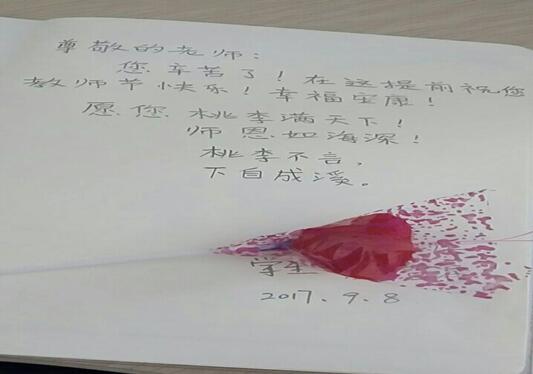 尊敬的老师：
您辛苦了！在这提前祝您
教师节快乐！幸福安康！
愿您桃李满天下！
师恩如海深！
桃李不言，
下自成溪。
学生
2017.9.8